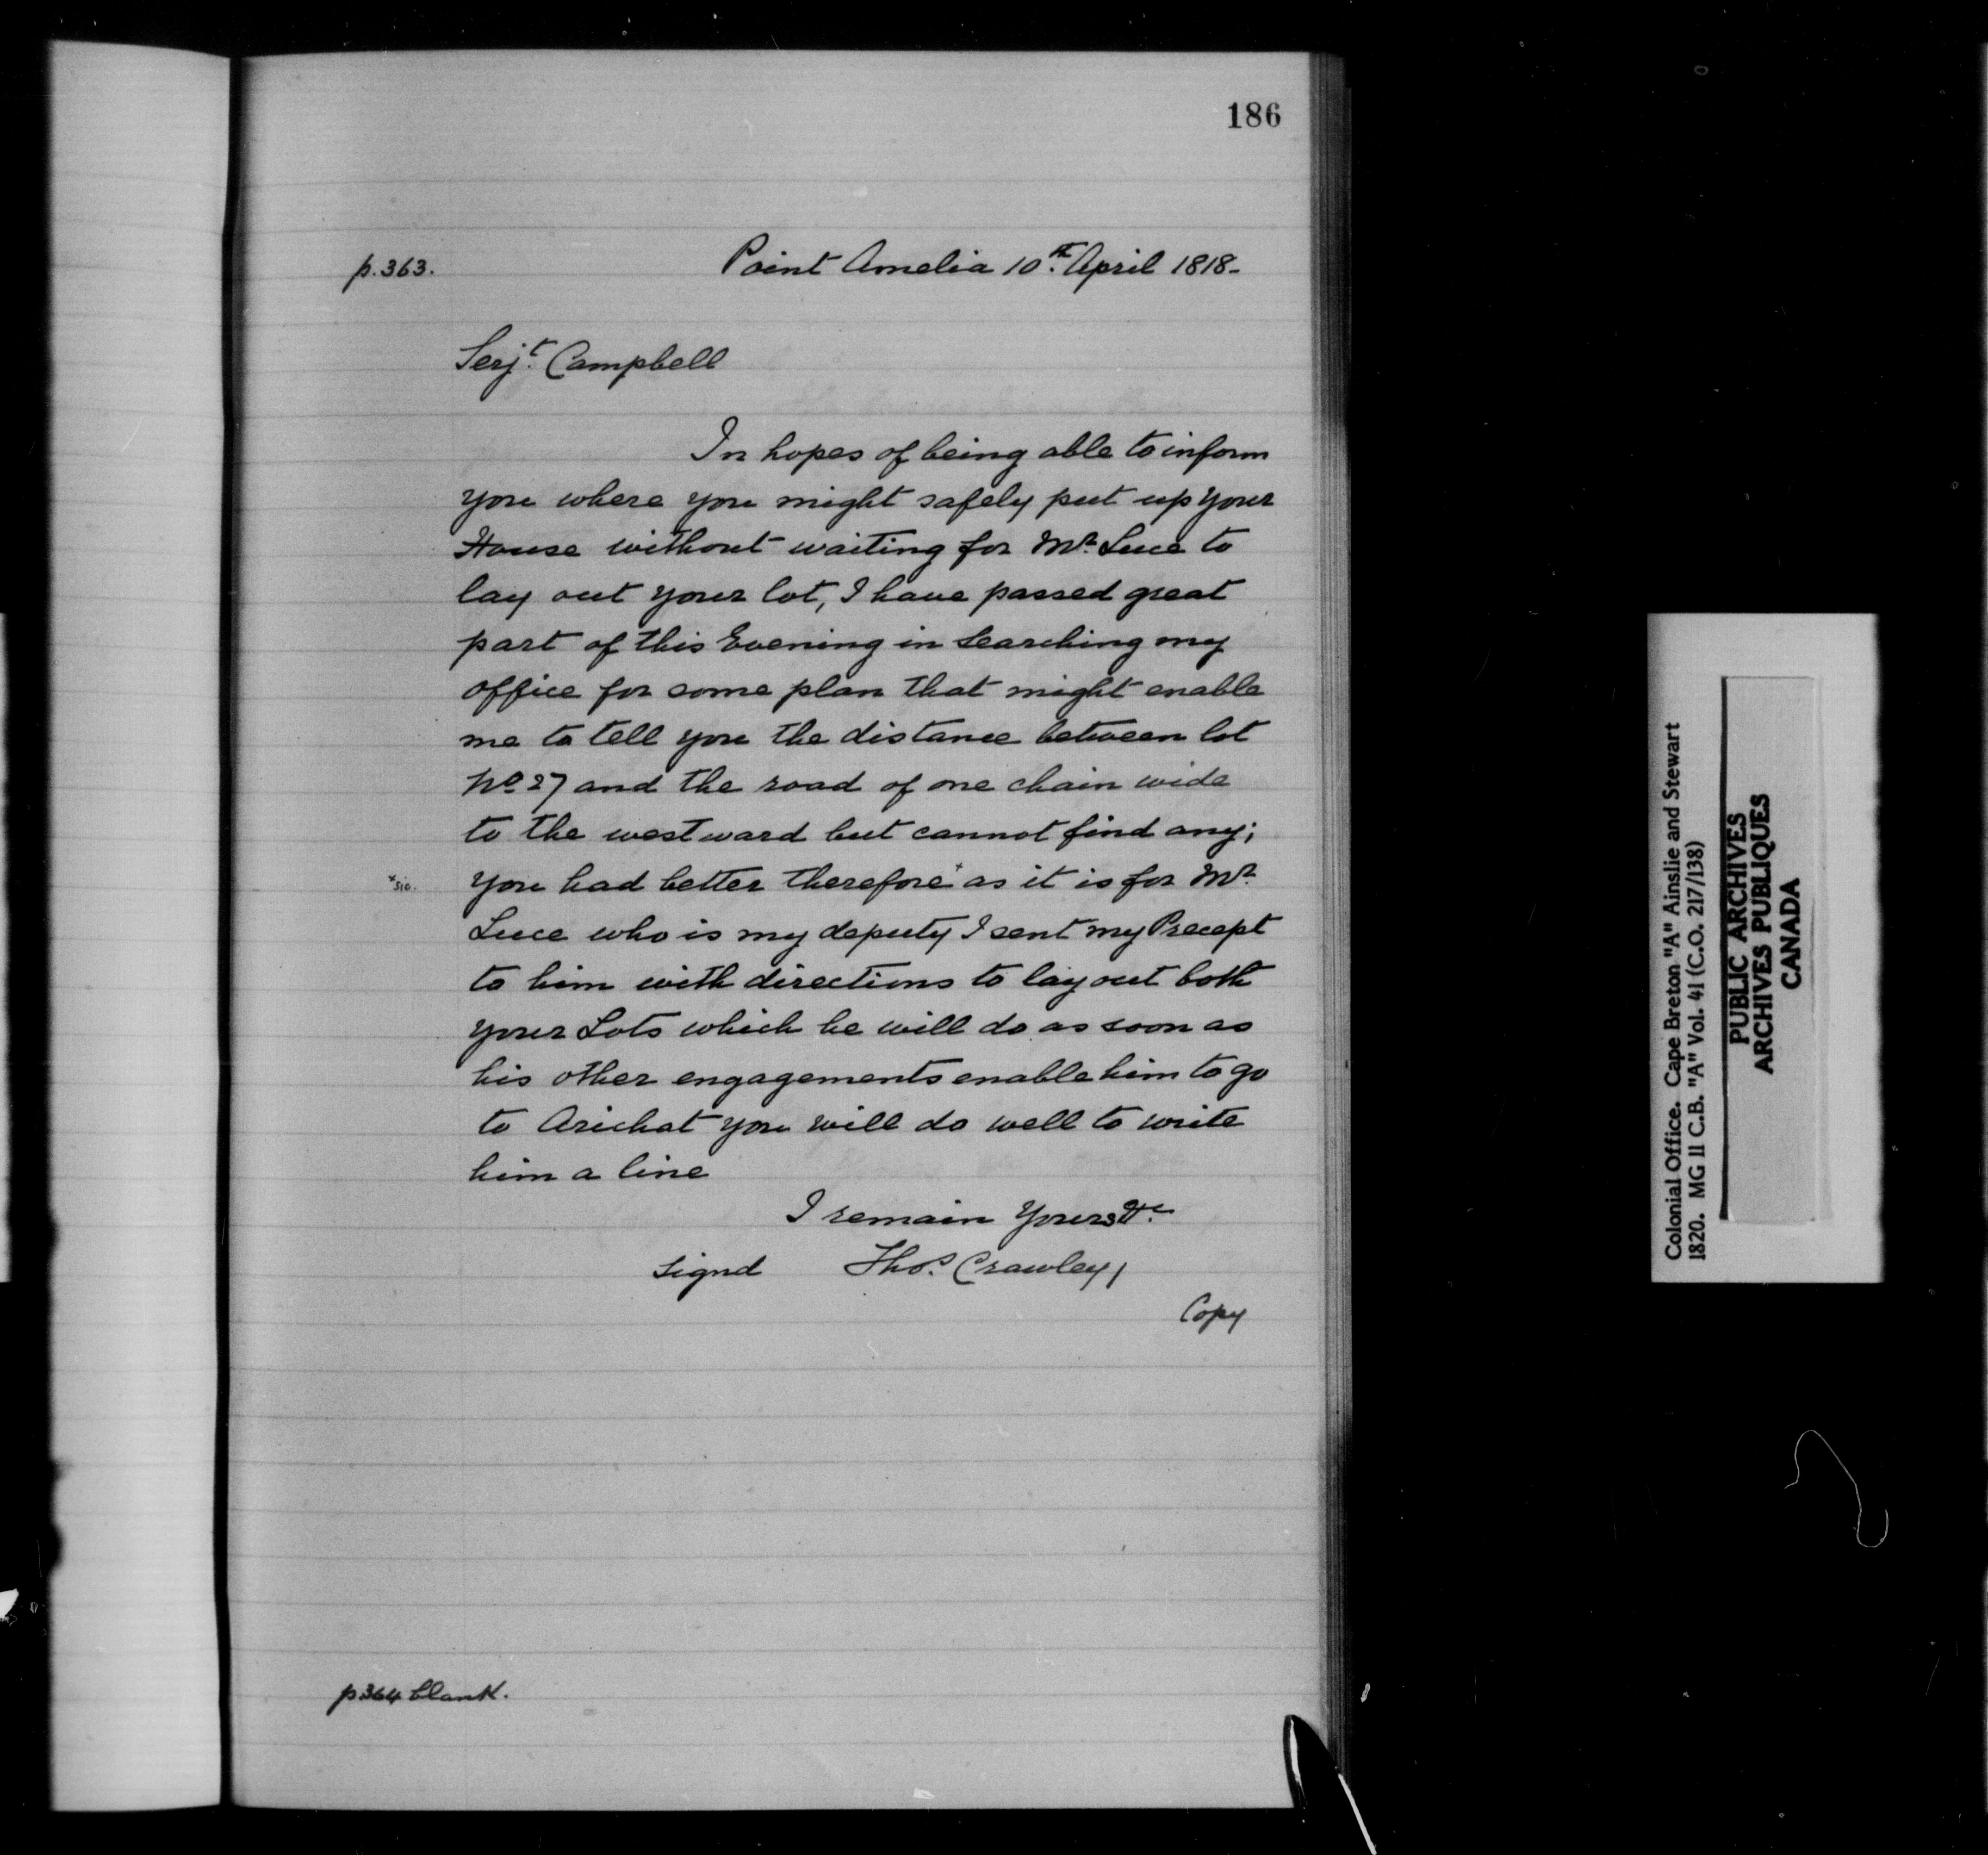 186
p.363.
Point Amelia 10th. April 1818-
Serjt. Campbell
In hopes of being able to inform
you where you might safely put up your
House without waiting for Mr. Luce to
lay out your lot, I have passed great
part of this Evening in searching my
office for some plan that might enable
me to tell you the distance between lot
No 27 and the road of one chain wide
to the westward but cannot find any;
x sic. you had better therefore x as it is for Mr.
Luce who is my deputy I sent my Precept
to him with directions to lay out both
your Lots which he will do as soon as
his other engagements enable him to go
to Arichat you will do well to write
him a line
I remain Yours &c.
signd Thos. Crawley/
Copy
p364 blank.
Colonial Office. Cape Breton "A" Ainslie and Stewart
1820. MG 11 C.B. "A" Vol. 41 (C.O. 217/138)
PUBLIC ARCHIVES
ARCHIVES PUBLIQUES
CANADA